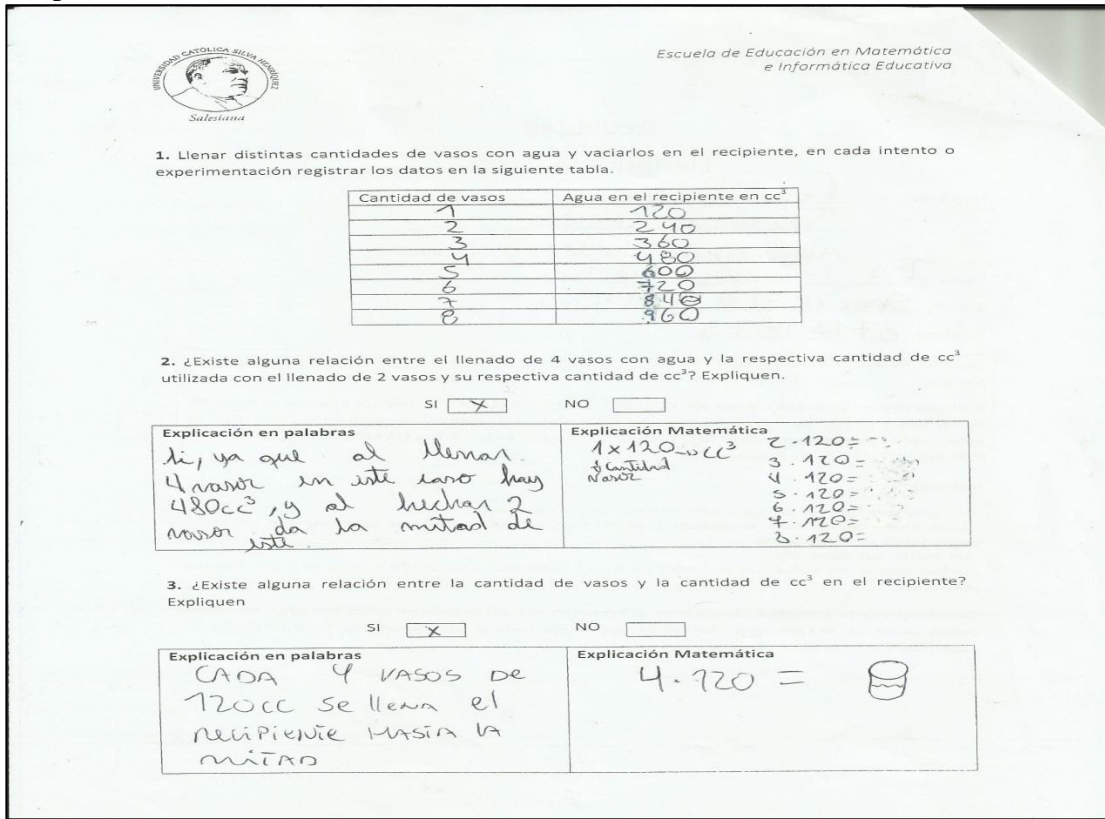 UNIVERSIDAD CATÓLICA SILVA HENRÍQUEZ
Salesiana
Escuela de Educación en Matemática
e Informática Educativa
1. Llenar distintas cantidades de vasos con agua y vaciarlos en el recipiente, en cada intento o
experimentación registrar los datos en la siguiente tabla.
Cantidad de vasos Agua en el recipiente en cc³
1 120
2 240
3 360
4 480
5 600
6 720
7 840
8 960
2. ¿Existe alguna relación entre el llenado de 4 vasos con agua y la respectiva cantidad de cc³
utilizada con el llenado de 2 vasos y su respectiva cantidad de cc³? Expliquen.
SI X NO
Explicación en palabras
si, ya que al llenar
4 vasos en este caso hay
480cc³, y al hechar 2
vasos da la mitad de
este.
Explicación Matemática
1 x 120 → cc³
cantidad
vasos
2 · 120 =
3 · 120 =
4 · 120 =
5 · 120 =
6 · 120 =
7 · 120 =
8 · 120 =
3. ¿Existe alguna relación entre la cantidad de vasos y la cantidad de cc³ en el recipiente?
Expliquen
SI X NO
Explicación en palabras
CADA 4 VASOS DE
120cc se llena el
recipiente HASTA LA
MITAD
Explicación Matemática
4 · 120 =